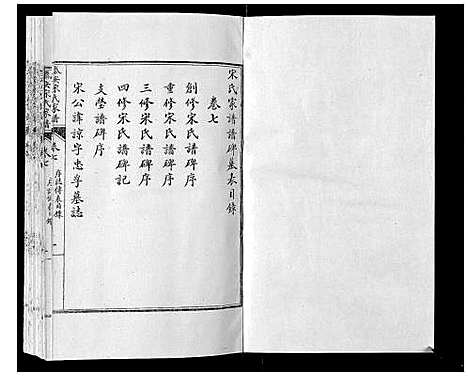 宋氏家譜譜碑墓表目錄
卷七
創修宋氏譜碑序
重修宋氏譜碑序
三修宋氏譜碑序
四修宋氏譜碑記
支塋譜碑序
宋公諱諒字忠孚墓誌
宋氏家譜
卷七